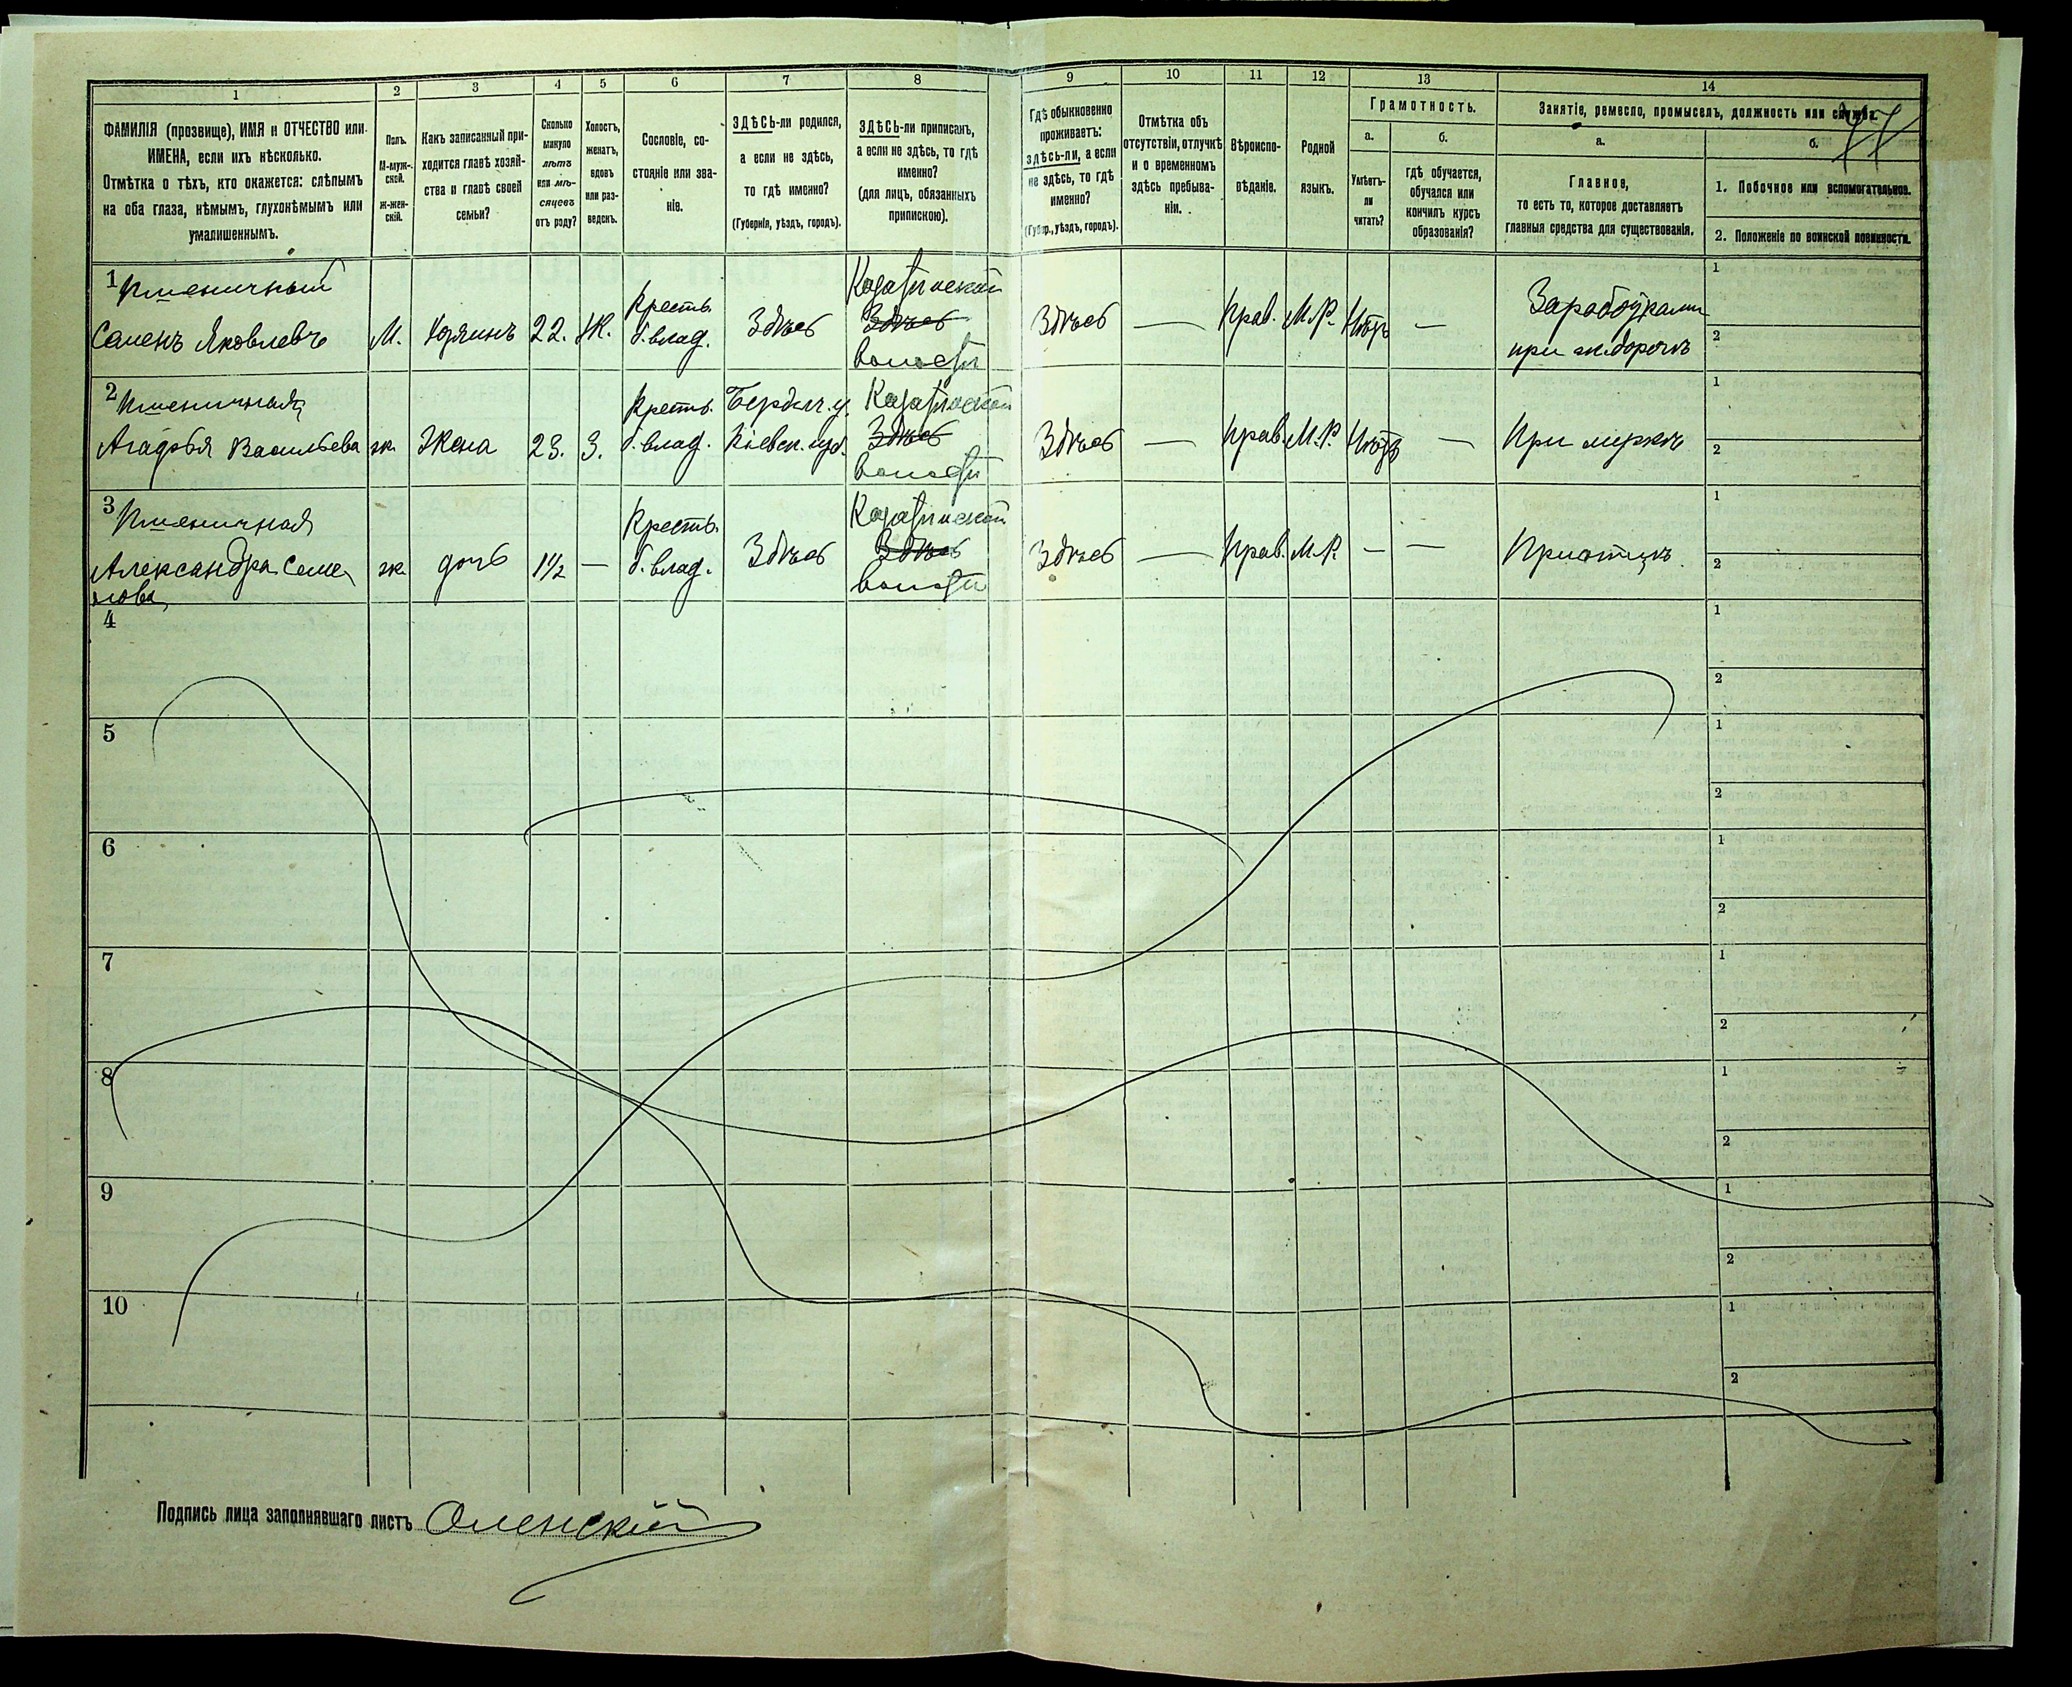 1 2 3 4 5 6 7 8 9 10 11 12 13 14
ФАМИЛІЯ (прозвище), ИМЯ и ОТЧЕСТВО или
ИМЕНА, если ихъ нѣсколько.
Отмѣтка о тѣхъ, кто окажется: слѣпымъ
на оба глаза, нѣмымъ, глухонѣмымъ или
умалишеннымъ.
Полъ.
М-муж-
ской.
ж-жен-
скій.
Какъ записанный при-
ходится главѣ хозяй-
ства и главѣ своей
семьи?
Сколько
минуло
лѣтъ
или мѣ-
сяцевъ
отъ роду?
Холостъ,
женатъ,
вдовъ
или раз-
веденъ.
Сословіе, со-
стояніе или зва-
ніе.
ЗДѢСЬ-ли родился,
а если не здѣсь,
то гдѣ именно?
(Губернія, уѣздъ, городъ).
ЗДѢСЬ-ли приписанъ,
а если не здѣсь, то гдѣ
именно?
(для лицъ, обязанныхъ
припискою).
Гдѣ обыкновенно
проживаетъ:
здѣсь-ли, а если
не здѣсь, то гдѣ
именно?
(Губер., уѣздъ, городъ).
Отмѣтка объ
отсутствіи, отлучкѣ
и о временномъ
здѣсь пребыва-
ніи.
Вѣроиспо-
вѣданіе.
Родной
языкъ.
Грамотность.
а.
Умѣетъ-
ли
читать?
б.
гдѣ обучается,
обучался или
кончилъ курсъ
образованія?
Занятіе, ремесло, промыселъ, должность или служба.
а.
Главное,
то есть то, которое доставляетъ
главныя средства для существованія.
б.
1. Побочное или вспомогательное.
2. Положеніе по воинской повинности.
1 Пшеничный
Семенъ Яковлевъ
М.
Хозяинъ
22.
Ж.
Кресть.
б. влад.
Здѣсь
Козятинской
Здѣсь
волости
Здѣсь
—
Прав.
М.Р.
Нѣтъ
—
Заработками
1
2
2 Пшеничная
Агафья Васильева
ж.
Жена
23.
З.
Кресть.
б. влад.
Бердич. у.
Кіевск. губ.
Козятинской
Здѣсь
волости
Здѣсь
—
Прав.
М.Р.
Нѣтъ
—
При мужѣ
1
2
3 Пшеничная
Александра Семе-
нова
ж.
дочь
1½
—
Кресть.
б. влад.
Здѣсь
Козятинской
Здѣсь
волости
Здѣсь
—
Прав.
М.Р.
—
—
При отцѣ
1
2
4
1
2
5
1
2
6
1
2
7
1
2
8
1
2
9
1
2
10
1
2
Подпись лица заполнявшаго листъ Оленскій